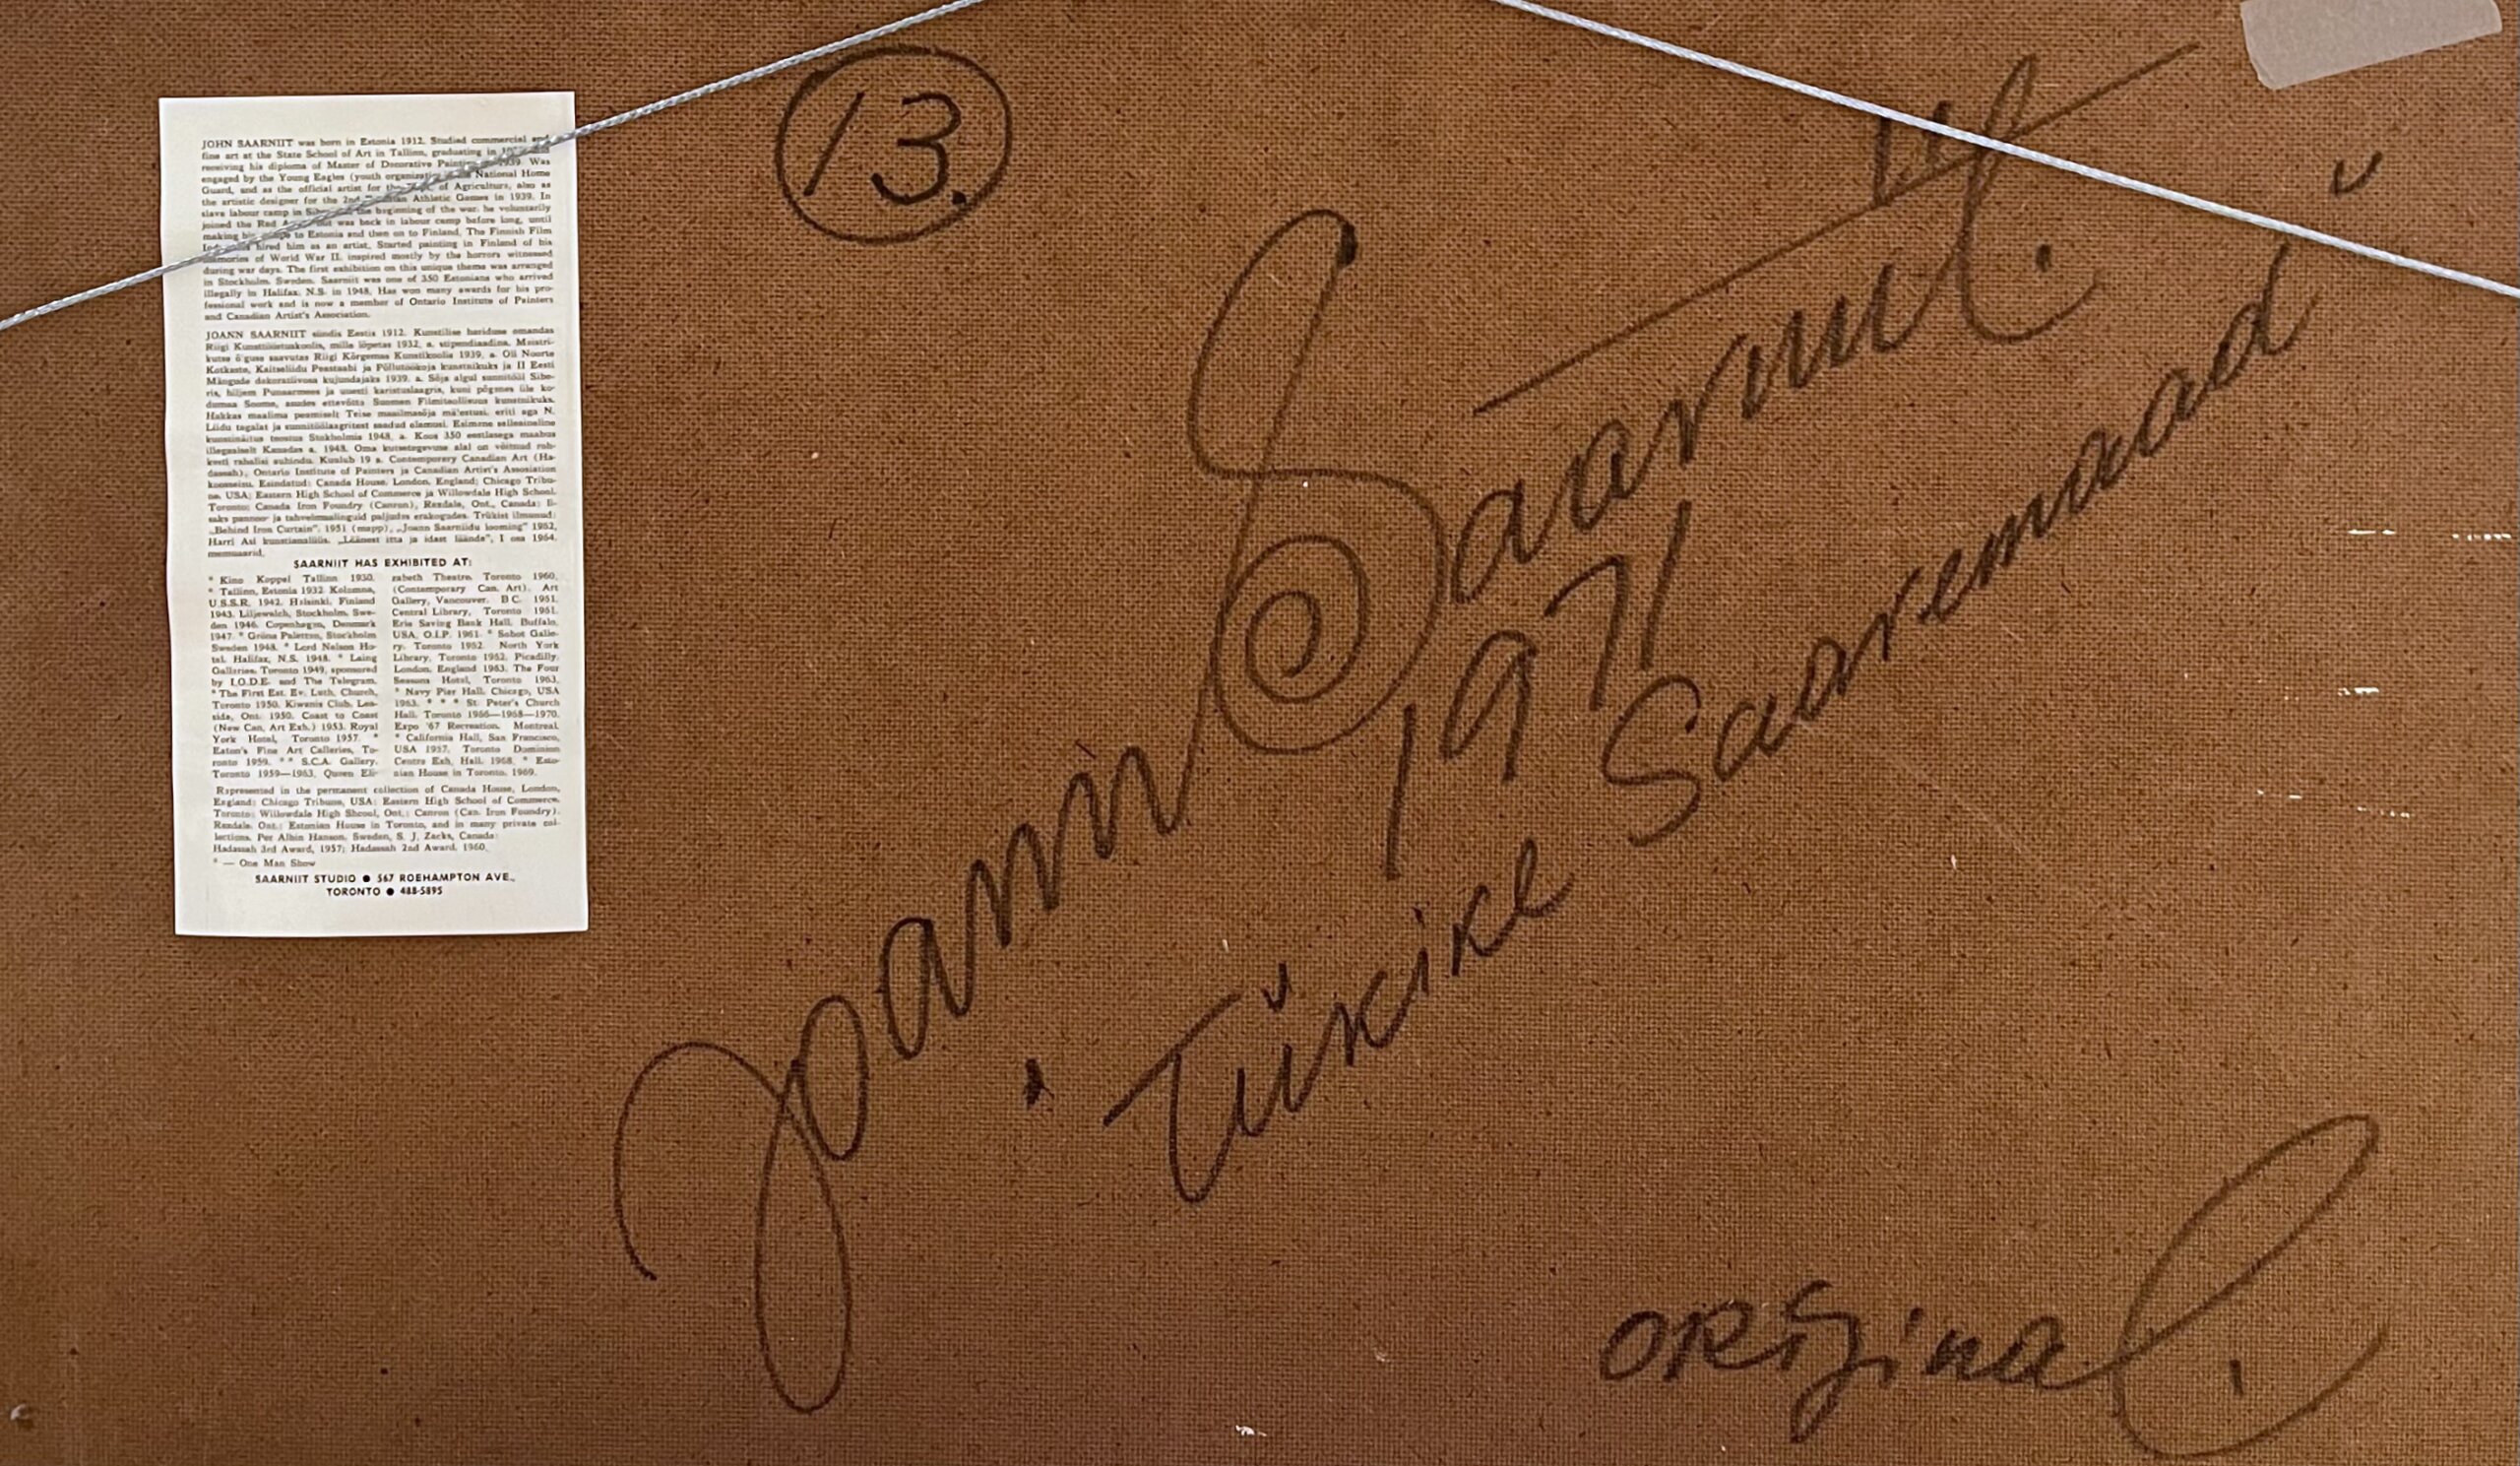 JOHN SAARNIIT was born in Estonia 1912. Studied commercial and
fine art at the State School of Art in Tallinn, graduating in
receiving his diploma of Master of Decorative 1939. Was
engaged by the Young Eagles (youth National Home
Guard, and as the official artist for of Agriculture, also as
the artistic designer for the 2nd Athletic Games in 1939. In
slave labour camp in the beginning of the war, he voluntarily
joined the Red was back in labour camp before long, until
making his to Estonia and then on to Finland. The Finnish Film
hired him as an artist. Started painting in Finland of his
memories of World War II, inspired mostly by the horrors witnessed
during war days. The first exhibition on this unique theme was arranged
in Stockholm, Sweden. Saarniit was one of 350 Estonians who arrived
illegally in Halifax, N.S. in 1948. Has won many awards for his pro-
fessional work and is now a member of Ontario Institute of Painters
and Canadian Artist's Association.
JOANN SAARNIIT sündis Eestis 1912. Kunstilise hariduse omandas
Riigi Kunsttööstuskoolis, mille lõpetas 1932. a. stipendiaadina. Meistri-
kutse õiguse saavutas Riigi Kõrgemas Kunstikoolis 1939. a. Oli Noorte
Kotkaste, Kaitseliidu Peastaabi ja Põllutöökoja kunstnikuks ja II Eesti
Mängude dekoratiivseks kujundajaks 1939. a. Sõja algul sunnitööl Sibe-
ris, hiljem Punaarmees ja uuesti karistuslaagris, kuni põgenes üle ko-
dumaa Soome, asudes ettevõtte Suomen Filmiteollisuus kunstnikuks.
Hakkas maalima peamiselt Teise maailmasõja mälestusi, eriti aga N.
Liidu tagalat ja sunnitöölaagritest saadud elamusi. Esimene sellesisuline
kunstinäitus teostus Stokholmis 1948. a. Koos 350 eestlasega maabus
illegaalselt Kanadas a. 1948. Oma kutsetegevuse alal on võitnud roh-
kesti rahalisi auhindu. Kuulub 19 a. Contemporary Canadian Art (Ha-
dassah), Ontario Institute of Painters ja Canadian Artist's Association
koosseisu. Esindatud: Canada House, London, England; Chicago Tribu-
ne, USA; Eastern High School of Commerce ja Willowdale High School,
Toronto; Canada Iron Foundry (Canron), Rexdale, Ont., Canada; li-
saks pannoo- ja tahvelmaalinguid paljudes erakogudes. Trükist ilmunud:
„Behind Iron Curtain". 1951 (mapp), „Joann Saarniidu looming" 1962,
Harri Asi kunstianalüüs. „Läänest itta ja idast läände", I osa 1964,
memuaarid.
SAARNIIT HAS EXHIBITED AT:
* Kino Koppel Tallinn 1930.
* Tallinn, Estonia 1932. Kolomna,
U.S.S.R. 1942. Helsinki, Finland
1943. Liljewalch, Stockholm, Swe-
den 1946. Copenhagen, Denmark
1947. * Gröna Paletten, Stockholm
Sweden 1948. * Lord Nelson Ho-
tel, Halifax, N.S. 1948. * Laing
Galleries, Toronto 1949, sponsored
by I.O.D.E. and The Telegram.
* The First Est. Ev. Luth. Church,
Toronto 1950. Kiwanis Club, Lea-
side, Ont. 1950. Coast to Coast
(New Can. Art Exh.) 1953. Royal
York Hotel, Toronto 1957. *
Eaton's Fine Art Galleries, To-
ronto 1959. * * S.C.A. Gallery,
Toronto 1959—1963. Queen Eli-
zabeth Theatre, Toronto 1960,
(Contemporary Can. Art). Art
Gallery, Vancouver, B.C. 1961.
Central Library, Toronto 1961.
Erie Saving Bank Hall, Buffalo,
USA, O.I.P. 1961. * Sobot Galle-
ry, Toronto 1962. North York
Library, Toronto 1962. Picadilly,
London, England 1963. The Four
Seasons Hotel, Toronto 1963.
* Navy Pier Hall, Chicago, USA
1963. * * * St. Peter's Church
Hall, Toronto 1966—1968—1970.
Expo '67 Recreation, Montreal.
* California Hall, San Francisco,
USA 1957. Toronto Dominion
Centre Exh. Hall. 1968. * Esto-
nian House in Toronto, 1969.
Represented in the permanent collection of Canada House, London,
England; Chicago Tribune, USA; Eastern High School of Commerce,
Toronto; Willowdale High Shcool, Ont.; Canron (Can. Iron Foundry),
Rexdale, Ont.; Estonian House in Toronto, and in many private col-
lections. Per Albin Hanson, Sweden, S. J. Zacks, Canada;
Hadassah 3rd Award, 1957; Hadassah 2nd Award, 1960.
* — One Man Show
SAARNIIT STUDIO ● 567 ROEHAMPTON AVE.,
TORONTO ● 488-5895
13.
Joann Saarniit.
1971
"Tükike Saaremaad"
original.